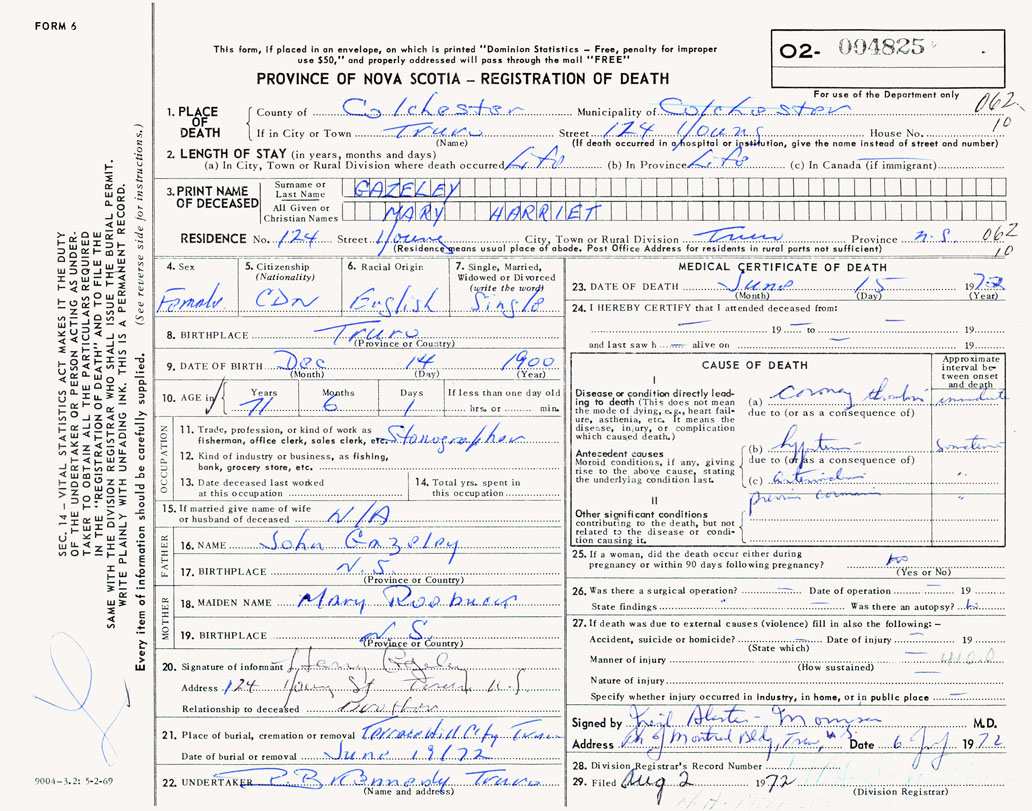 FORM 6
This form, if placed in an envelope, on which is printed "Dominion Statistics – Free, penalty for improper
use $50," and properly addressed will pass through the mail "FREE"
PROVINCE OF NOVA SCOTIA – REGISTRATION OF DEATH
02- 004825
For use of the Department only
062
10
1. PLACE OF DEATH
County of Colchester Municipality of Colchester
If in City or Town Truro Street 124 Young House No.
(Name) (If death occurred in a hospital or institution, give the name instead of street and number)
2. LENGTH OF STAY (in years, months and days)
(a) In City, Town or Rural Division where death occurred Life (b) In Province Life (c) In Canada (if immigrant)
3. PRINT NAME OF DECEASED
Surname or Last Name GAZELEY
All Given or Christian Names MARY HARRIET
RESIDENCE No. 124 Street Young City, Town or Rural Division Truro Province N.S. 062
(Residence means usual place of abode. Post Office Address for residents in rural parts not sufficient) 10
4. Sex Female
5. Citizenship (Nationality) CDN
6. Racial Origin English
7. Single, Married, Widowed or Divorced (write the word) Single
8. BIRTHPLACE Truro
(Province or Country)
9. DATE OF BIRTH Dec 14 1900
(Month) (Day) (Year)
10. AGE in Years 71 Months 6 Days 1 If less than one day old hrs. or min.
OCCUPATION
11. Trade, profession, or kind of work as
fisherman, office clerk, sales clerk, etc. Stenographer
12. Kind of industry or business, as fishing,
bank, grocery store, etc.
13. Date deceased last worked
at this occupation
14. Total yrs. spent in
this occupation
15. If married give name of wife
or husband of deceased N/A
FATHER
16. NAME John Gazeley
17. BIRTHPLACE N.S.
(Province or Country)
MOTHER
18. MAIDEN NAME Mary
19. BIRTHPLACE N.S.
(Province or Country)
20. Signature of informant Harry Gazeley
Address 124 Young St Truro N.S.
Relationship to deceased Brother
21. Place of burial, cremation or removal Terrace Hill Cty Truro
Date of burial or removal June 19/72
22. UNDERTAKER Kennedy Truro
(Name and address)
MEDICAL CERTIFICATE OF DEATH
23. DATE OF DEATH June 15 1972
(Month) (Day) (Year)
24. I HEREBY CERTIFY that I attended deceased from:
19 to 19
and last saw h alive on 19
CAUSE OF DEATH
Approximate interval between onset and death
I
Disease or condition directly leading to death (This does not mean
the mode of dying, e.g., heart failure, asthenia, etc. It means the
disease, injury, or complication which caused death.)
(a) coronary thrombosis immediate
due to (or as a consequence of)
Antecedent causes
Morbid conditions, if any, giving
rise to the above cause, stating
the underlying condition last.
(b)
due to (or as a consequence of)
(c)
II
Other significant conditions
contributing to the death, but not
related to the disease or condition causing it.
25. If a woman, did the death occur either during
pregnancy or within 90 days following pregnancy? no
(Yes or No)
26. Was there a surgical operation? Date of operation 19
State findings Was there an autopsy?
27. If death was due to external causes (violence) fill in also the following: –
Accident, suicide or homicide? Date of injury 19
(State which)
Manner of injury 410.0
(How sustained)
Nature of injury
Specify whether injury occurred in industry, in home, or in public place
Signed by M.D.
Address Bk of Montreal Bldg, Truro, N.S. Date 6 1972
28. Division Registrar's Record Number
29. Filed Aug 2 1972
(Division Registrar)
SEC. 14 – VITAL STATISTICS ACT MAKES IT THE DUTY
OF THE UNDERTAKER OR PERSON ACTING AS UNDERTAKER TO OBTAIN ALL THE PARTICULARS REQUIRED
IN THE "REGISTRATION OF DEATH" AND TO FILE THE
SAME WITH THE DIVISION REGISTRAR WHO SHALL ISSUE THE BURIAL PERMIT.
WRITE PLAINLY WITH UNFADING INK. THIS IS A PERMANENT RECORD.
Every item of information should be carefully supplied. (See reverse side for instructions.)
9004-3.2: 5-2-69